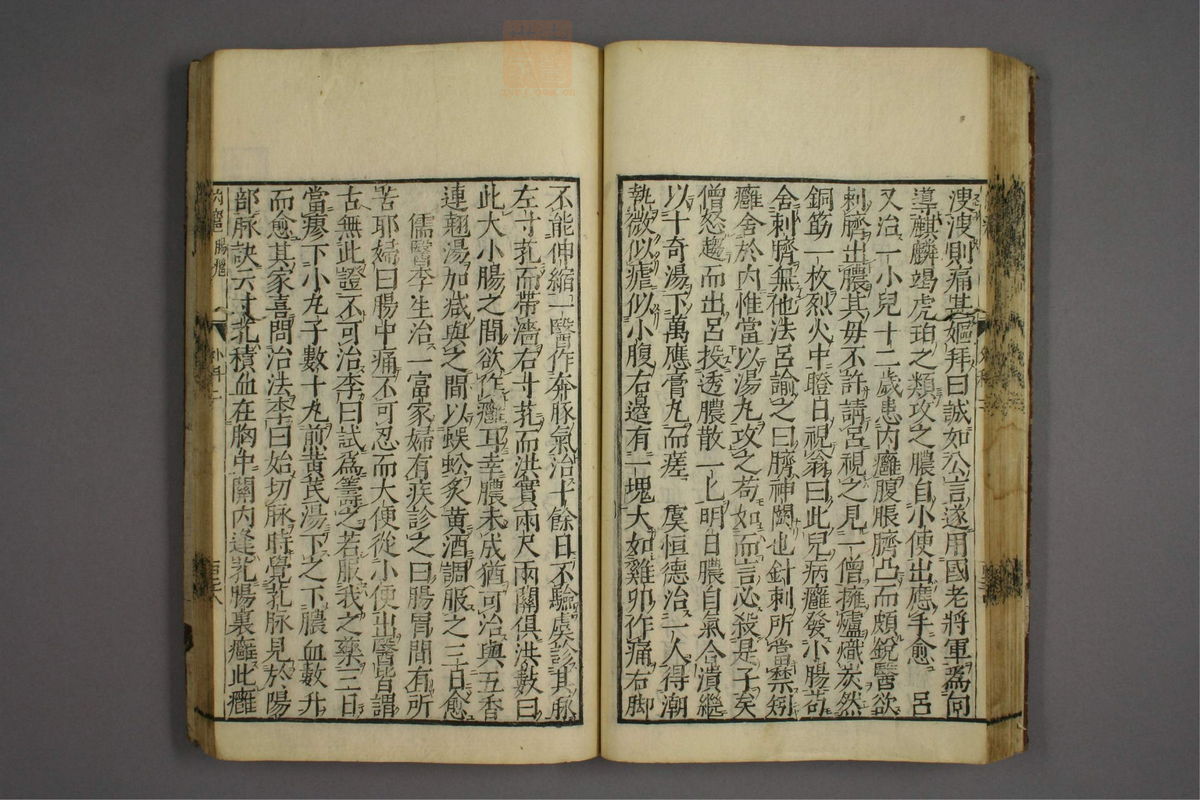 溲溲則痛甚嫗拜曰誠如公言遂用國老將軍為向
導麒麟竭虎珀之類攻之膿自小便出應手愈　呂
又治一小兒十二歲患內癰腹脹臍凸而頗銳醫欲
刺臍出膿其母不許請呂視之見一僧擁爐熾炭然
銅筯一枚烈火中瞪目視翁曰此兒病癰發小腸苟
舍刺臍無他法呂諭之曰臍神闕也針刺所當禁矧
癰舍於內惟當以湯丸攻之苟如而言必殺是子矣
僧怒趨而出呂投透膿散一匕明日膿自氣合潰繼
以十奇湯下萬應膏丸而瘥　虞恒德治一人得潮
熱微似瘧似小腹右邊有一塊大如雞卵作痛右脚
不能伸縮一醫作奔豚氣治十餘日不驗虞診其脉
左寸芤而帶濇右寸芤而洪實兩尺兩關俱洪數曰
此大小腸之間欲作癰耳幸膿未成猶可治與五香
連翹湯加減與之間以蜈蚣炙黃酒調服之三日愈
儒醫李生治一富家婦有疾診之曰腸胃間有所
苦耶婦曰腸中痛不可忍而大便從小便出醫皆謂
古無此證不可治李曰試為籌之若服我之藥三日
當瘳下小丸子數十丸煎黃芪湯下之下膿血數升
而愈其家喜問治法李曰始切脉時覺芤脉見於陽
部脉訣云寸芤積血在胸中關內逢芤腸裏癰此癰